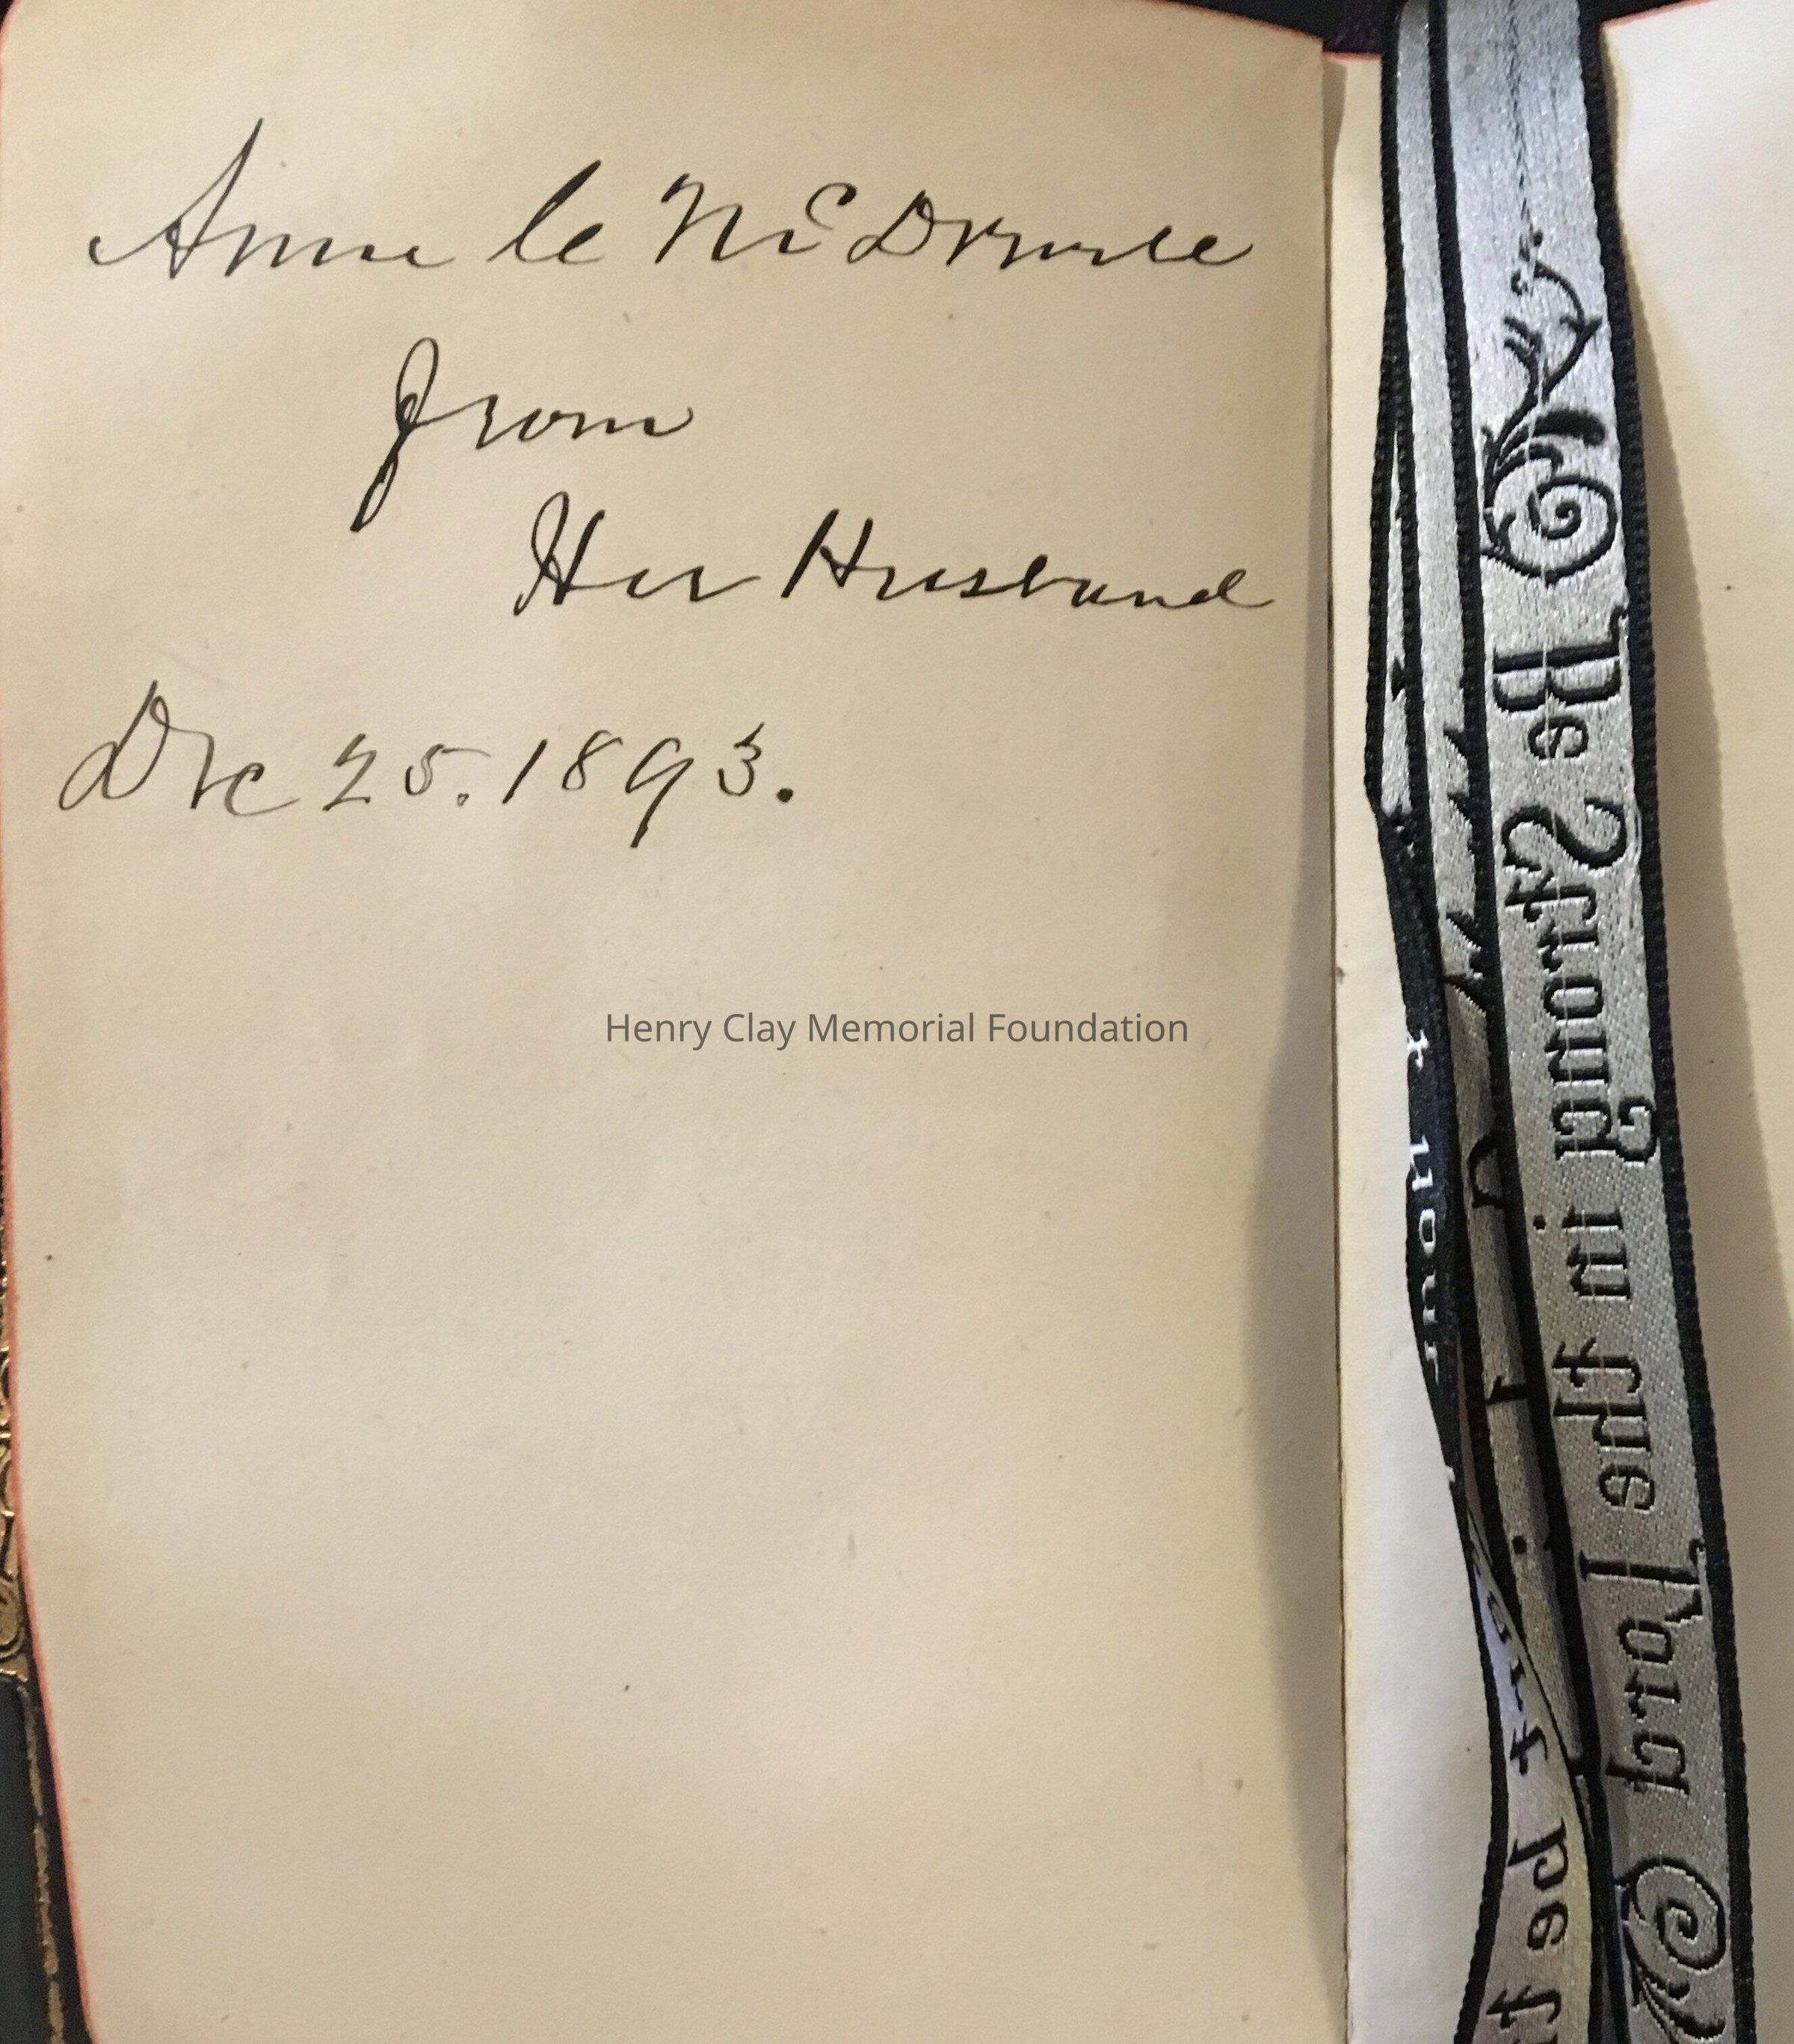 Annie le McDowell
from
Her Husband
Dec 25. 1893.
Henry Clay Memorial Foundation
Be Strong in the Lord